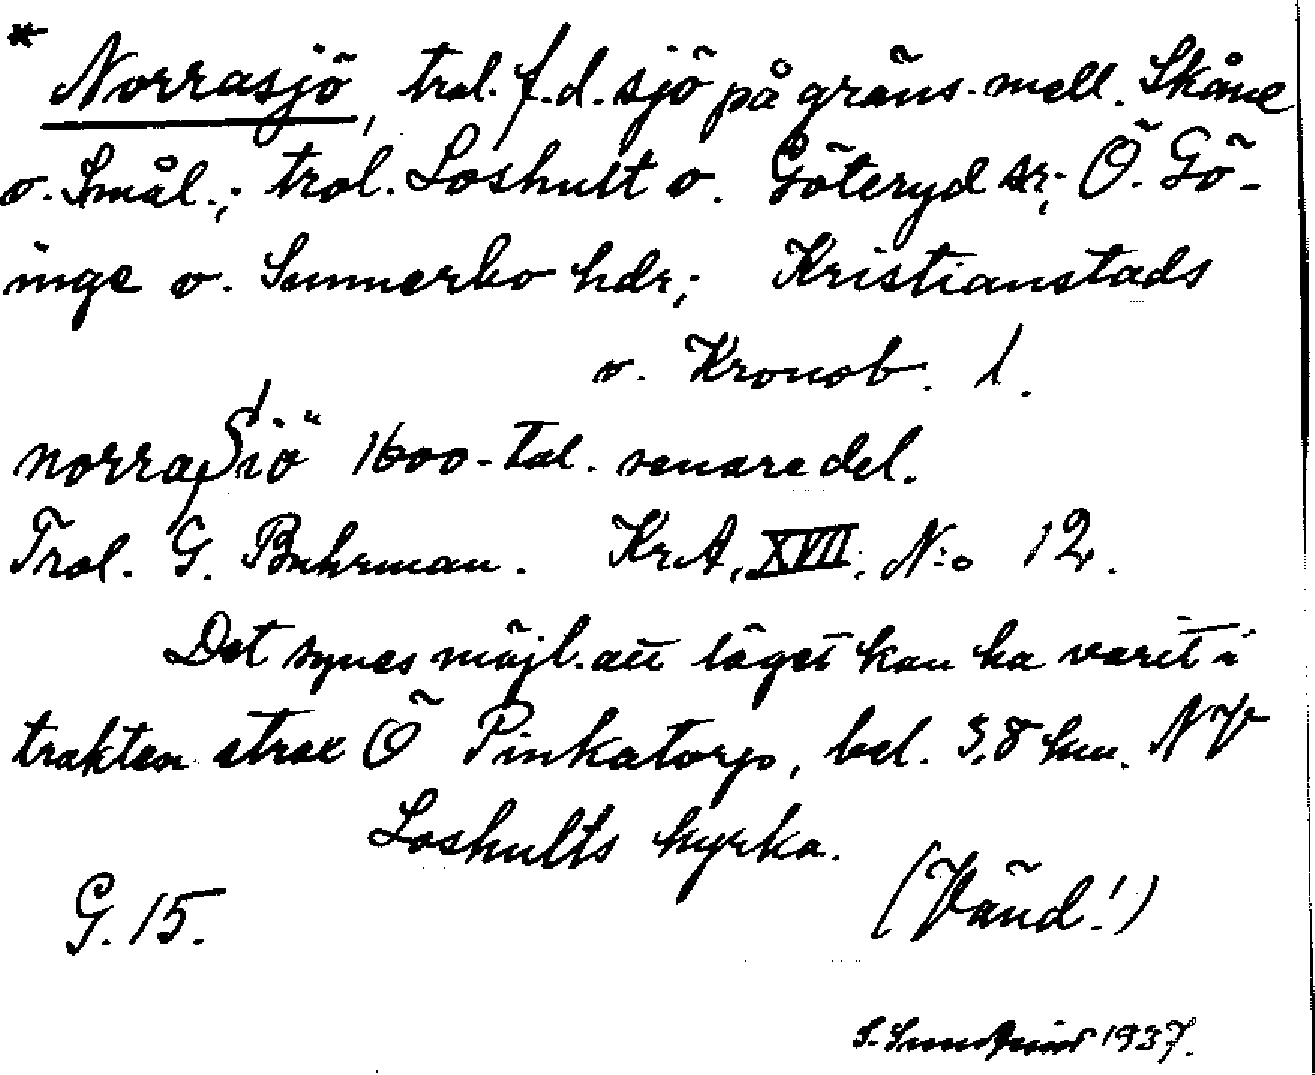 * Norrasjö, trol. f.d. sjö på gräns. mell. Skåne
o. Smål.; trol. Loshult o. Göteryd sr; Ö. Gö-
inge o. Sunnerbo hdr; Kristianstads
o. Kronob. l.
norra Siö 1600-tal. senare del.
Trol. G. Buhrman. Kr.A. XVII. N:o 12.
Det synes möjl. att läget kan ha varit i
trakten strax Ö Pinkatorp, bel. 3,8 km. NV
Loshults kyrka.
G. 15.
(Vänd!)
S. Sundquist 1937.